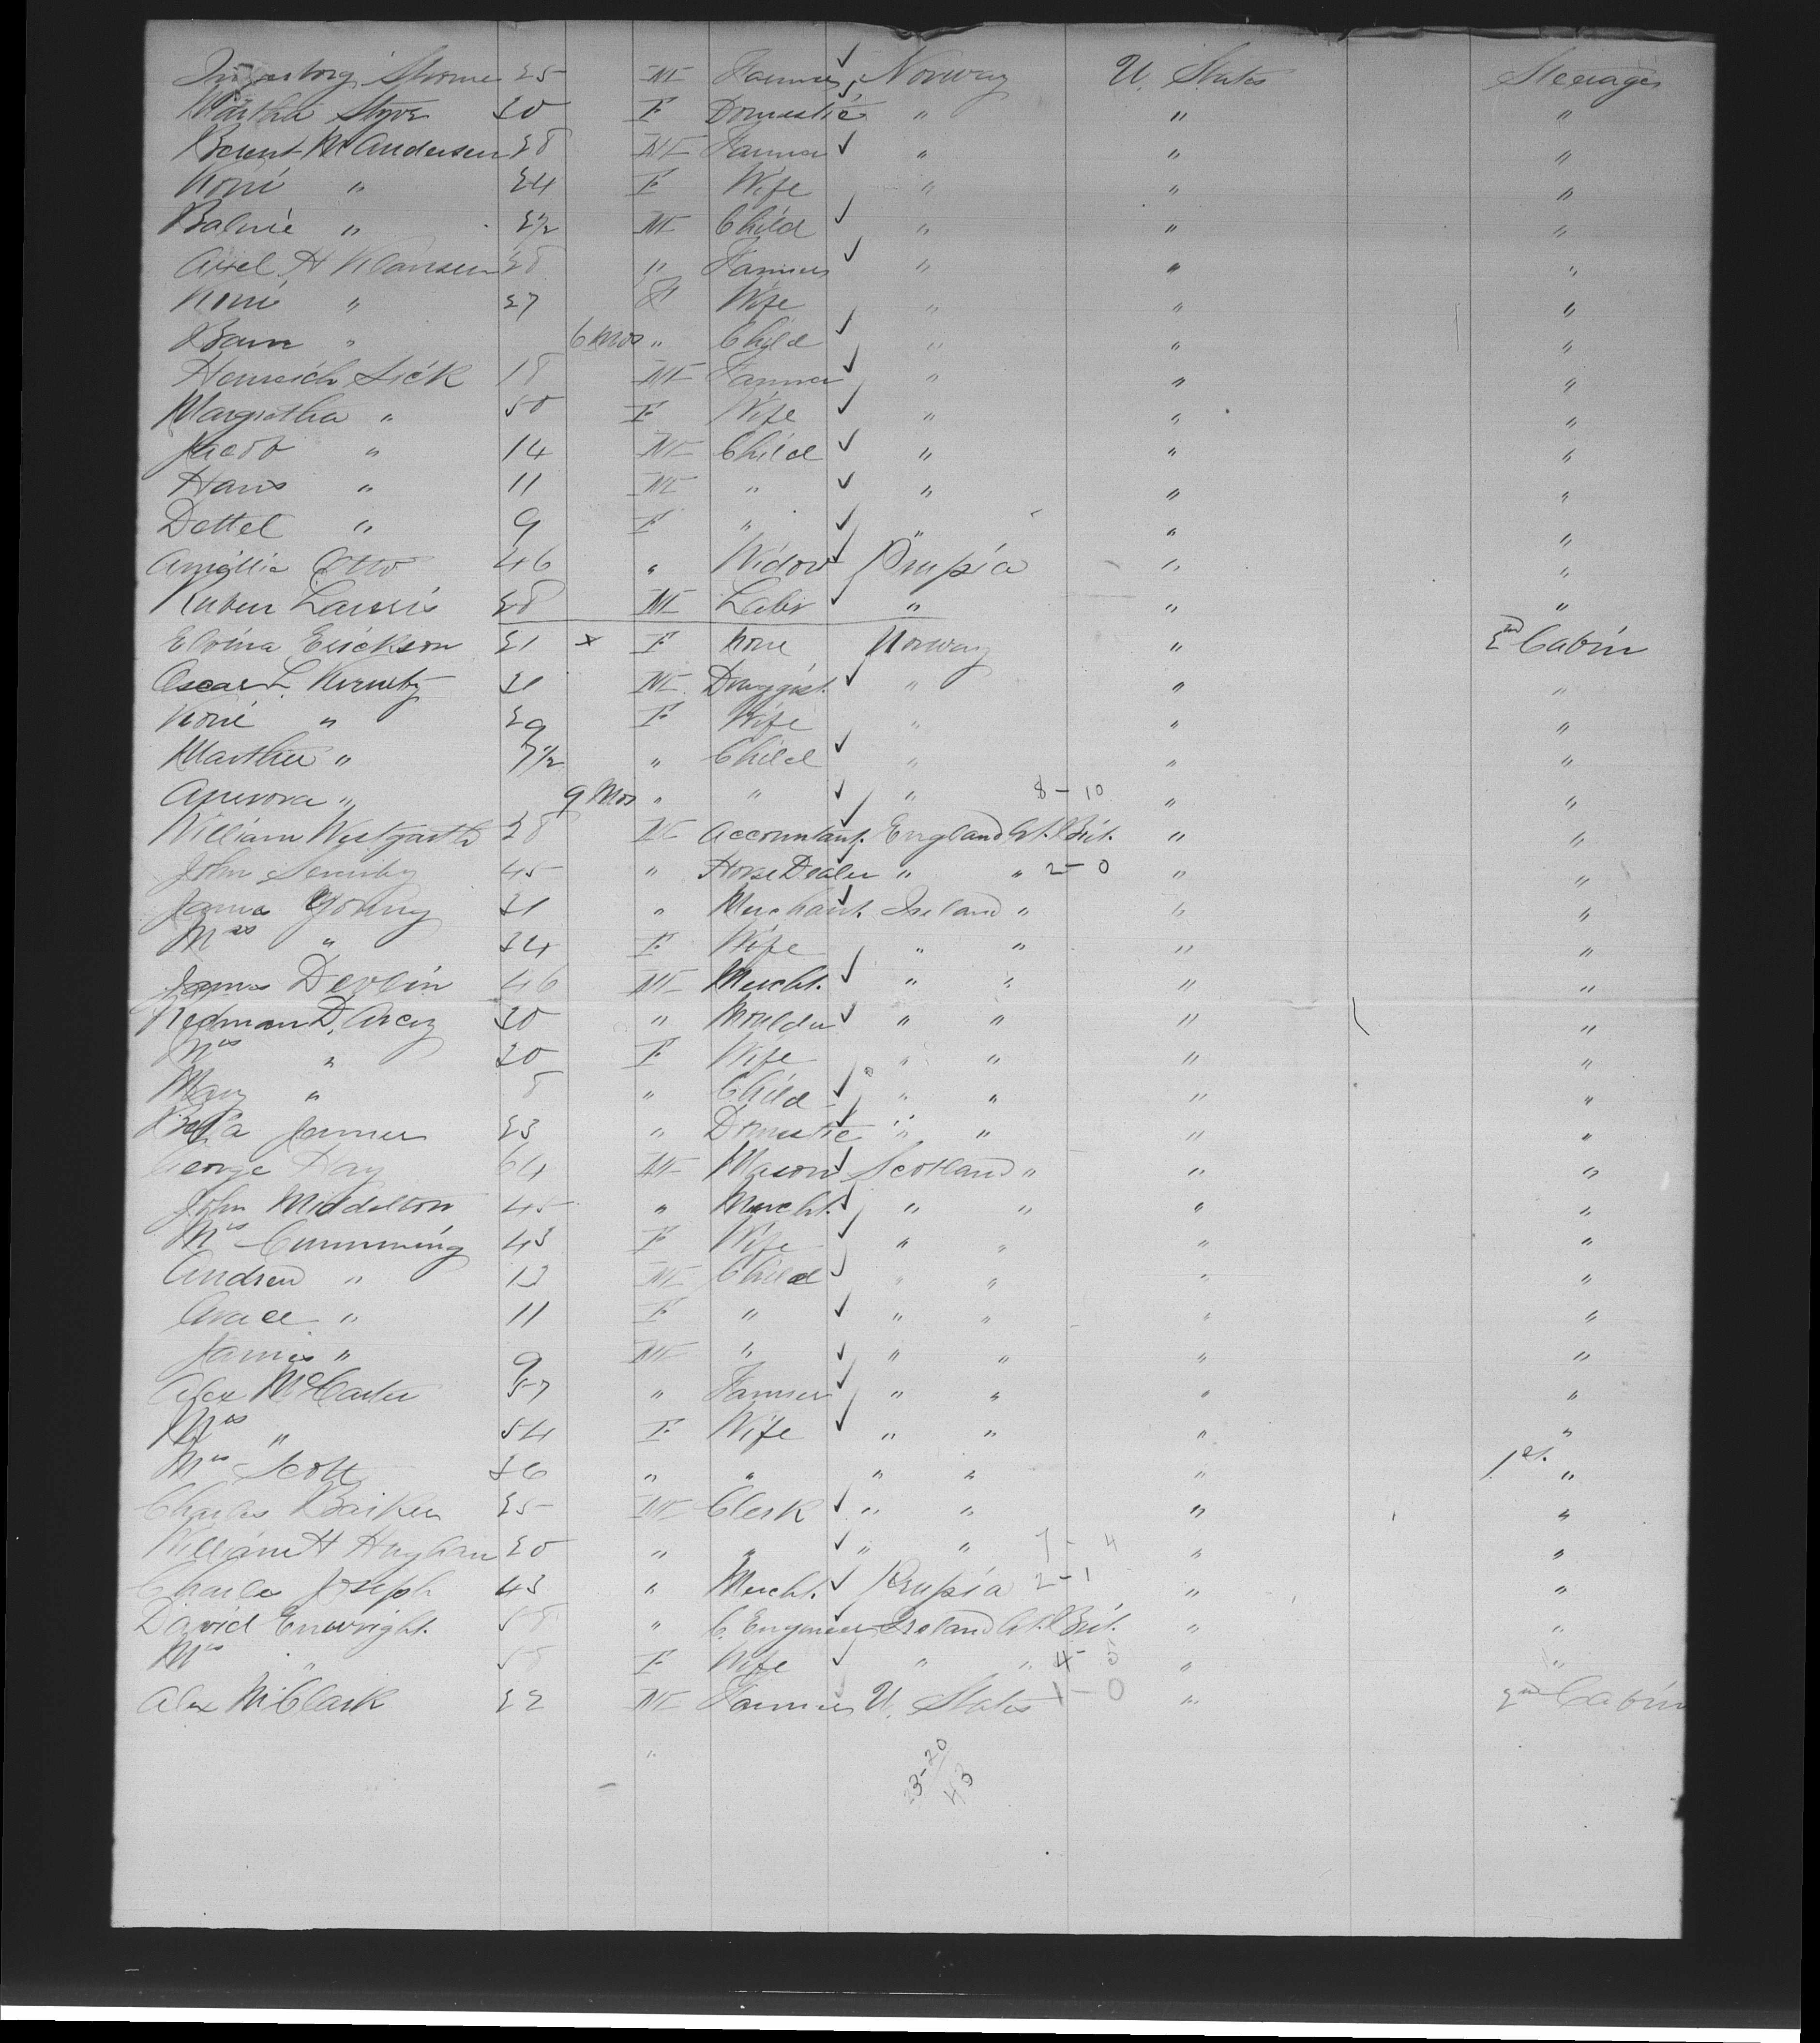 Ingeborg Strome 25 M Farmer Norway U. States Steerage
Martha Styve 30 F Domestic " " "
Berent M Andersen 28 M Farmer " " "
Koné " 24 F Wife " " "
Balvie " 2½ M Child " " "
Axel H Klausen 28 " Farmer " " "
Koné " 27 F Wife " " "
Barn " 6 Mos " Child " " "
Henrich Sick 18 M Farmer " " "
Margretha " 50 F Wife " " "
Jacob " 14 M Child " " "
Hans " 11 M " " " "
Dettel " 9 F " " " "
Amillia Otto 46 " Widow Prussia " "
Ruben 28 M Labr " " "
Elvina Erickson 21 x F None Norway " 2nd Cabin
Oscar L. 31 M Druggist " " "
Koné " 29 F Wife " " "
Marthie " 7½ " Child " " "
" 9 Mos " " " 8-10 " "
William Westgarth 28 M Accountant England Gt. Brit. " "
John 45 " Horse Dealer " " 2-0 " "
James Young 31 " Merchant Ireland " " "
Mrs " 34 F Wife " " " "
James Devlin 46 M Mercht. " " " "
Redman D. Arcy 30 " Moulder " " " "
Mrs " 30 F Wife " " " "
Mary " 8 " Child " " " "
Bella 23 " Domestic " " " "
George Hay 64 M Mason Scotland " " "
John Middleton 45 " Mercht. " " " "
Mrs Cumming 43 F Wife " " " "
Andrew " 13 M Child " " " "
Grace " 11 F " " " " "
James " 9 M " " " " "
Alex McCarter 57 " Farmer " " " "
Mrs " 54 F Wife " " " "
Mrs Scott 36 " " " " " 1st. "
Charles Barker 25 M Clerk " " " "
William H Hughan 20 " " " " 7-4 " "
Charles Joseph 43 " Mercht. Prussia 2-1 " "
David Enwright. 58 " C. Engineer Ireland Gt. Brit. " "
Mrs " 58 F Wife " " 4-5 " "
Alex McClark 22 M Farmer U. States 1-0 " 2nd Cabin
"
23-20
43